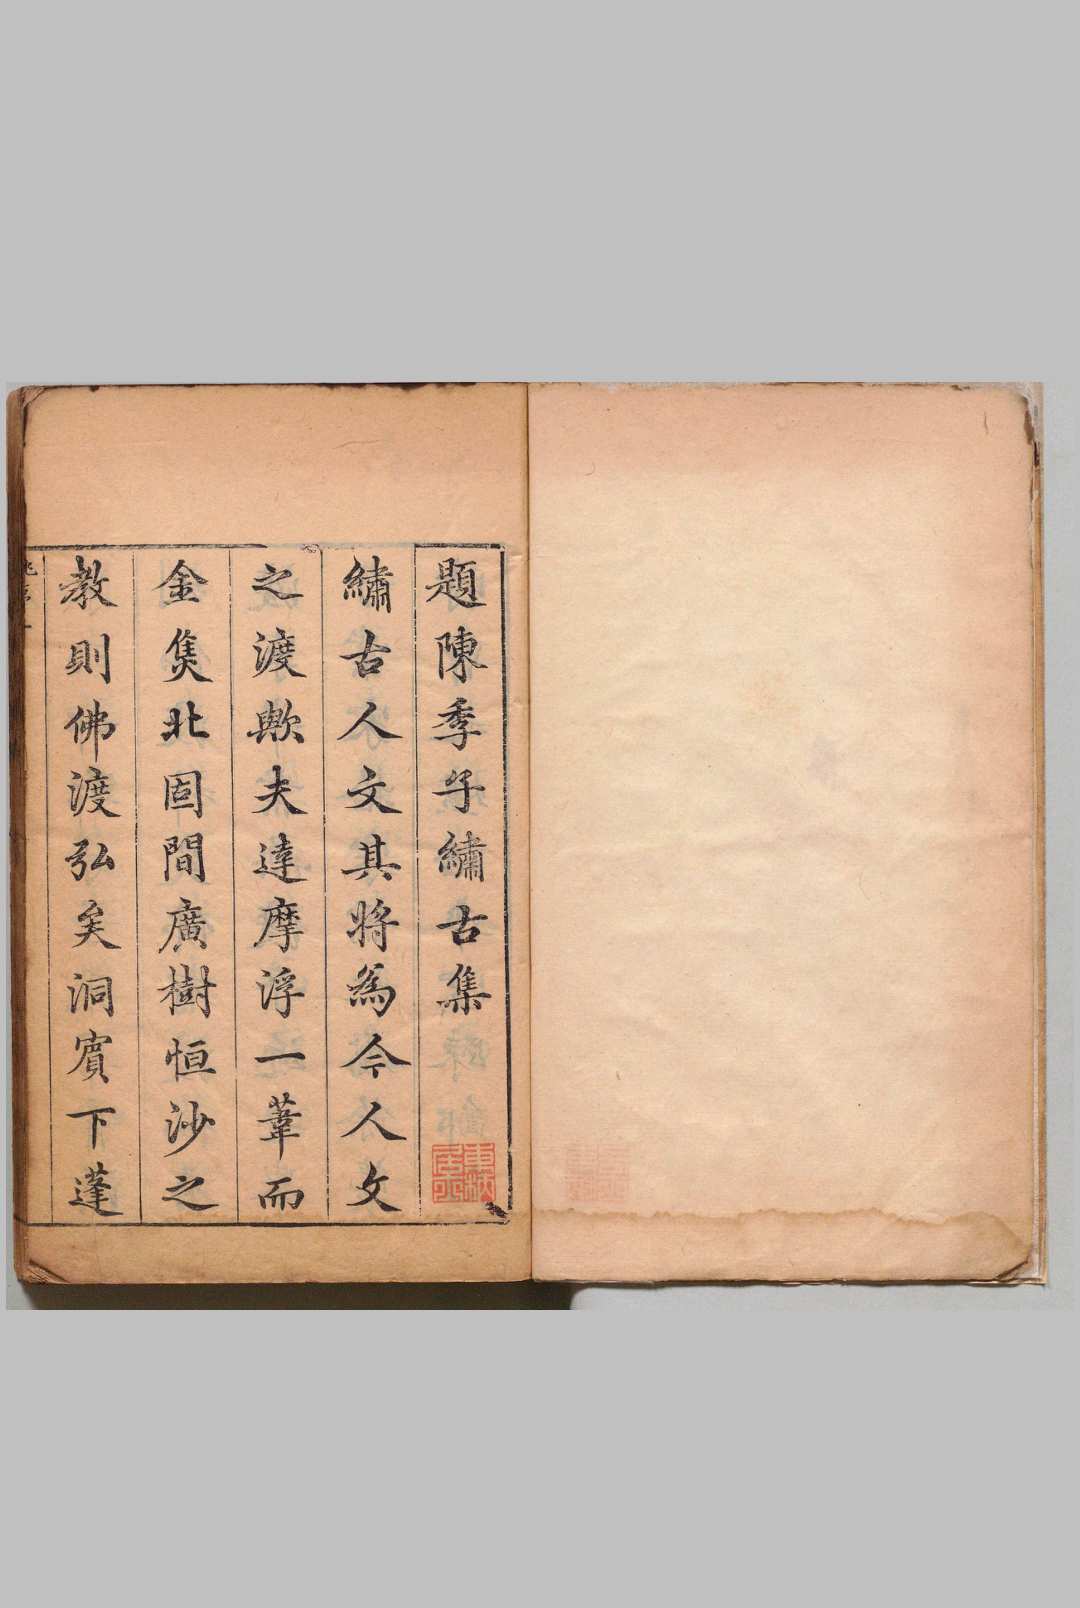 題陳季子繡古集
繡古人文其將為今人文
之渡歟夫達摩浮一葦而
金焦北固間廣樹恒沙之
教則佛渡弘矣洞賓下蓬